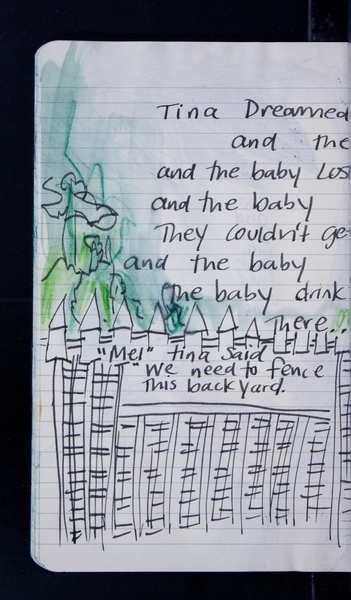 Tina Dreamed
and the
and the baby Los
and the baby
They couldn't ge
and the baby
the baby drink
There...
"Mel" Tina said
"we need to fence
this back yard.